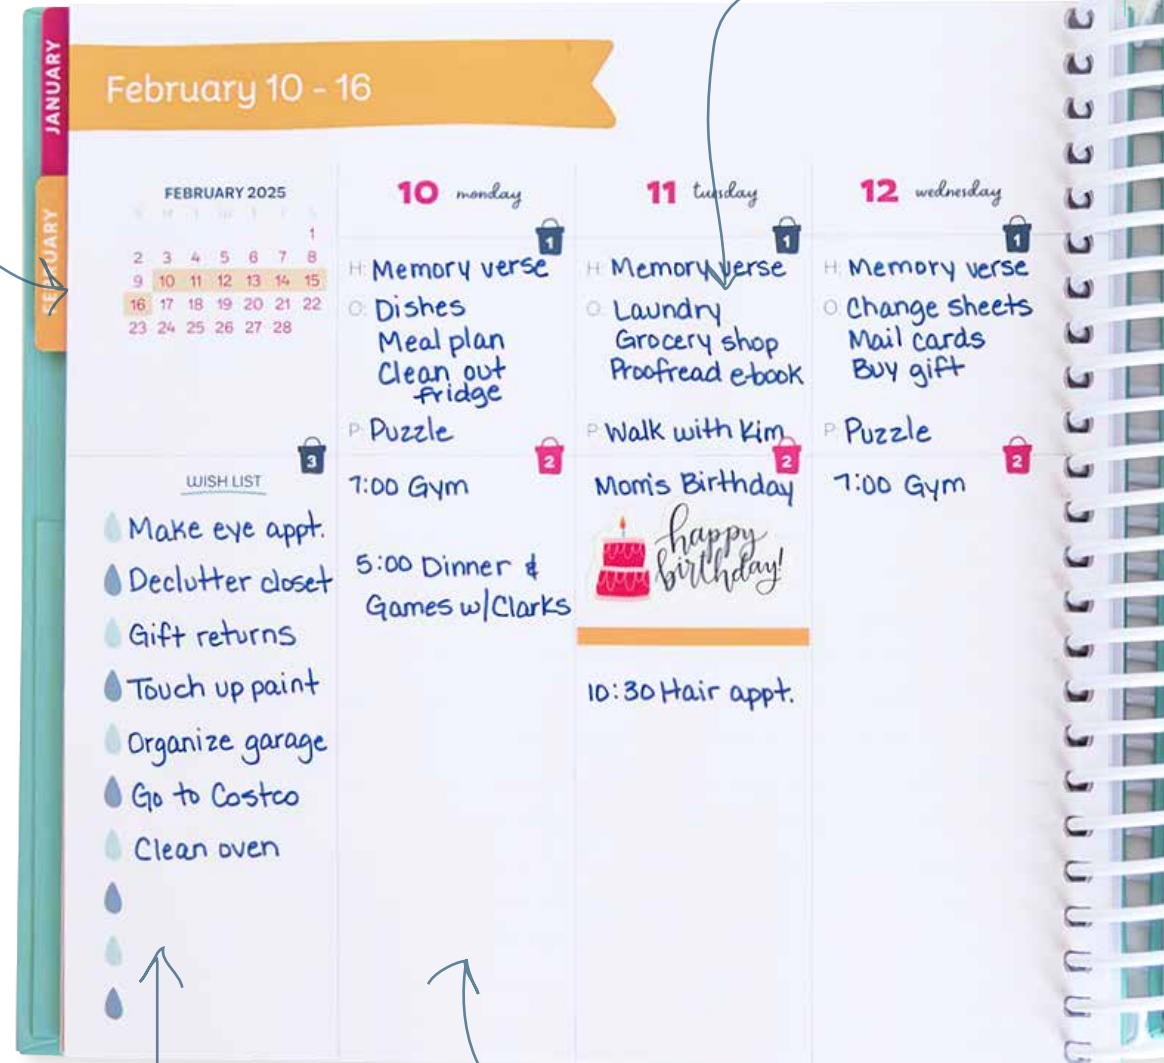 JANUARY
FEBRUARY
February 10 - 16
FEBRUARY 2025
S M T W T F S
1
2 3 4 5 6 7 8
9 10 11 12 13 14 15
16 17 18 19 20 21 22
23 24 25 26 27 28
3
WISH LIST
Make eye appt.
Declutter closet
Gift returns
Touch up paint
Organize garage
Go to Costco
Clean oven
10 monday
1
H: Memory verse
O: Dishes
Meal plan
Clean out
fridge
P: Puzzle
2
7:00 Gym
5:00 Dinner &
Games w/Clarks
11 tuesday
1
H: Memory verse
O: Laundry
Grocery shop
Proofread e-book
P: Walk with Kim
2
Mom's Birthday
happy
birthday!
10:30 Hair appt.
12 wednesday
1
H: Memory verse
O: Change sheets
Mail cards
Buy gift
P: Puzzle
2
7:00 Gym